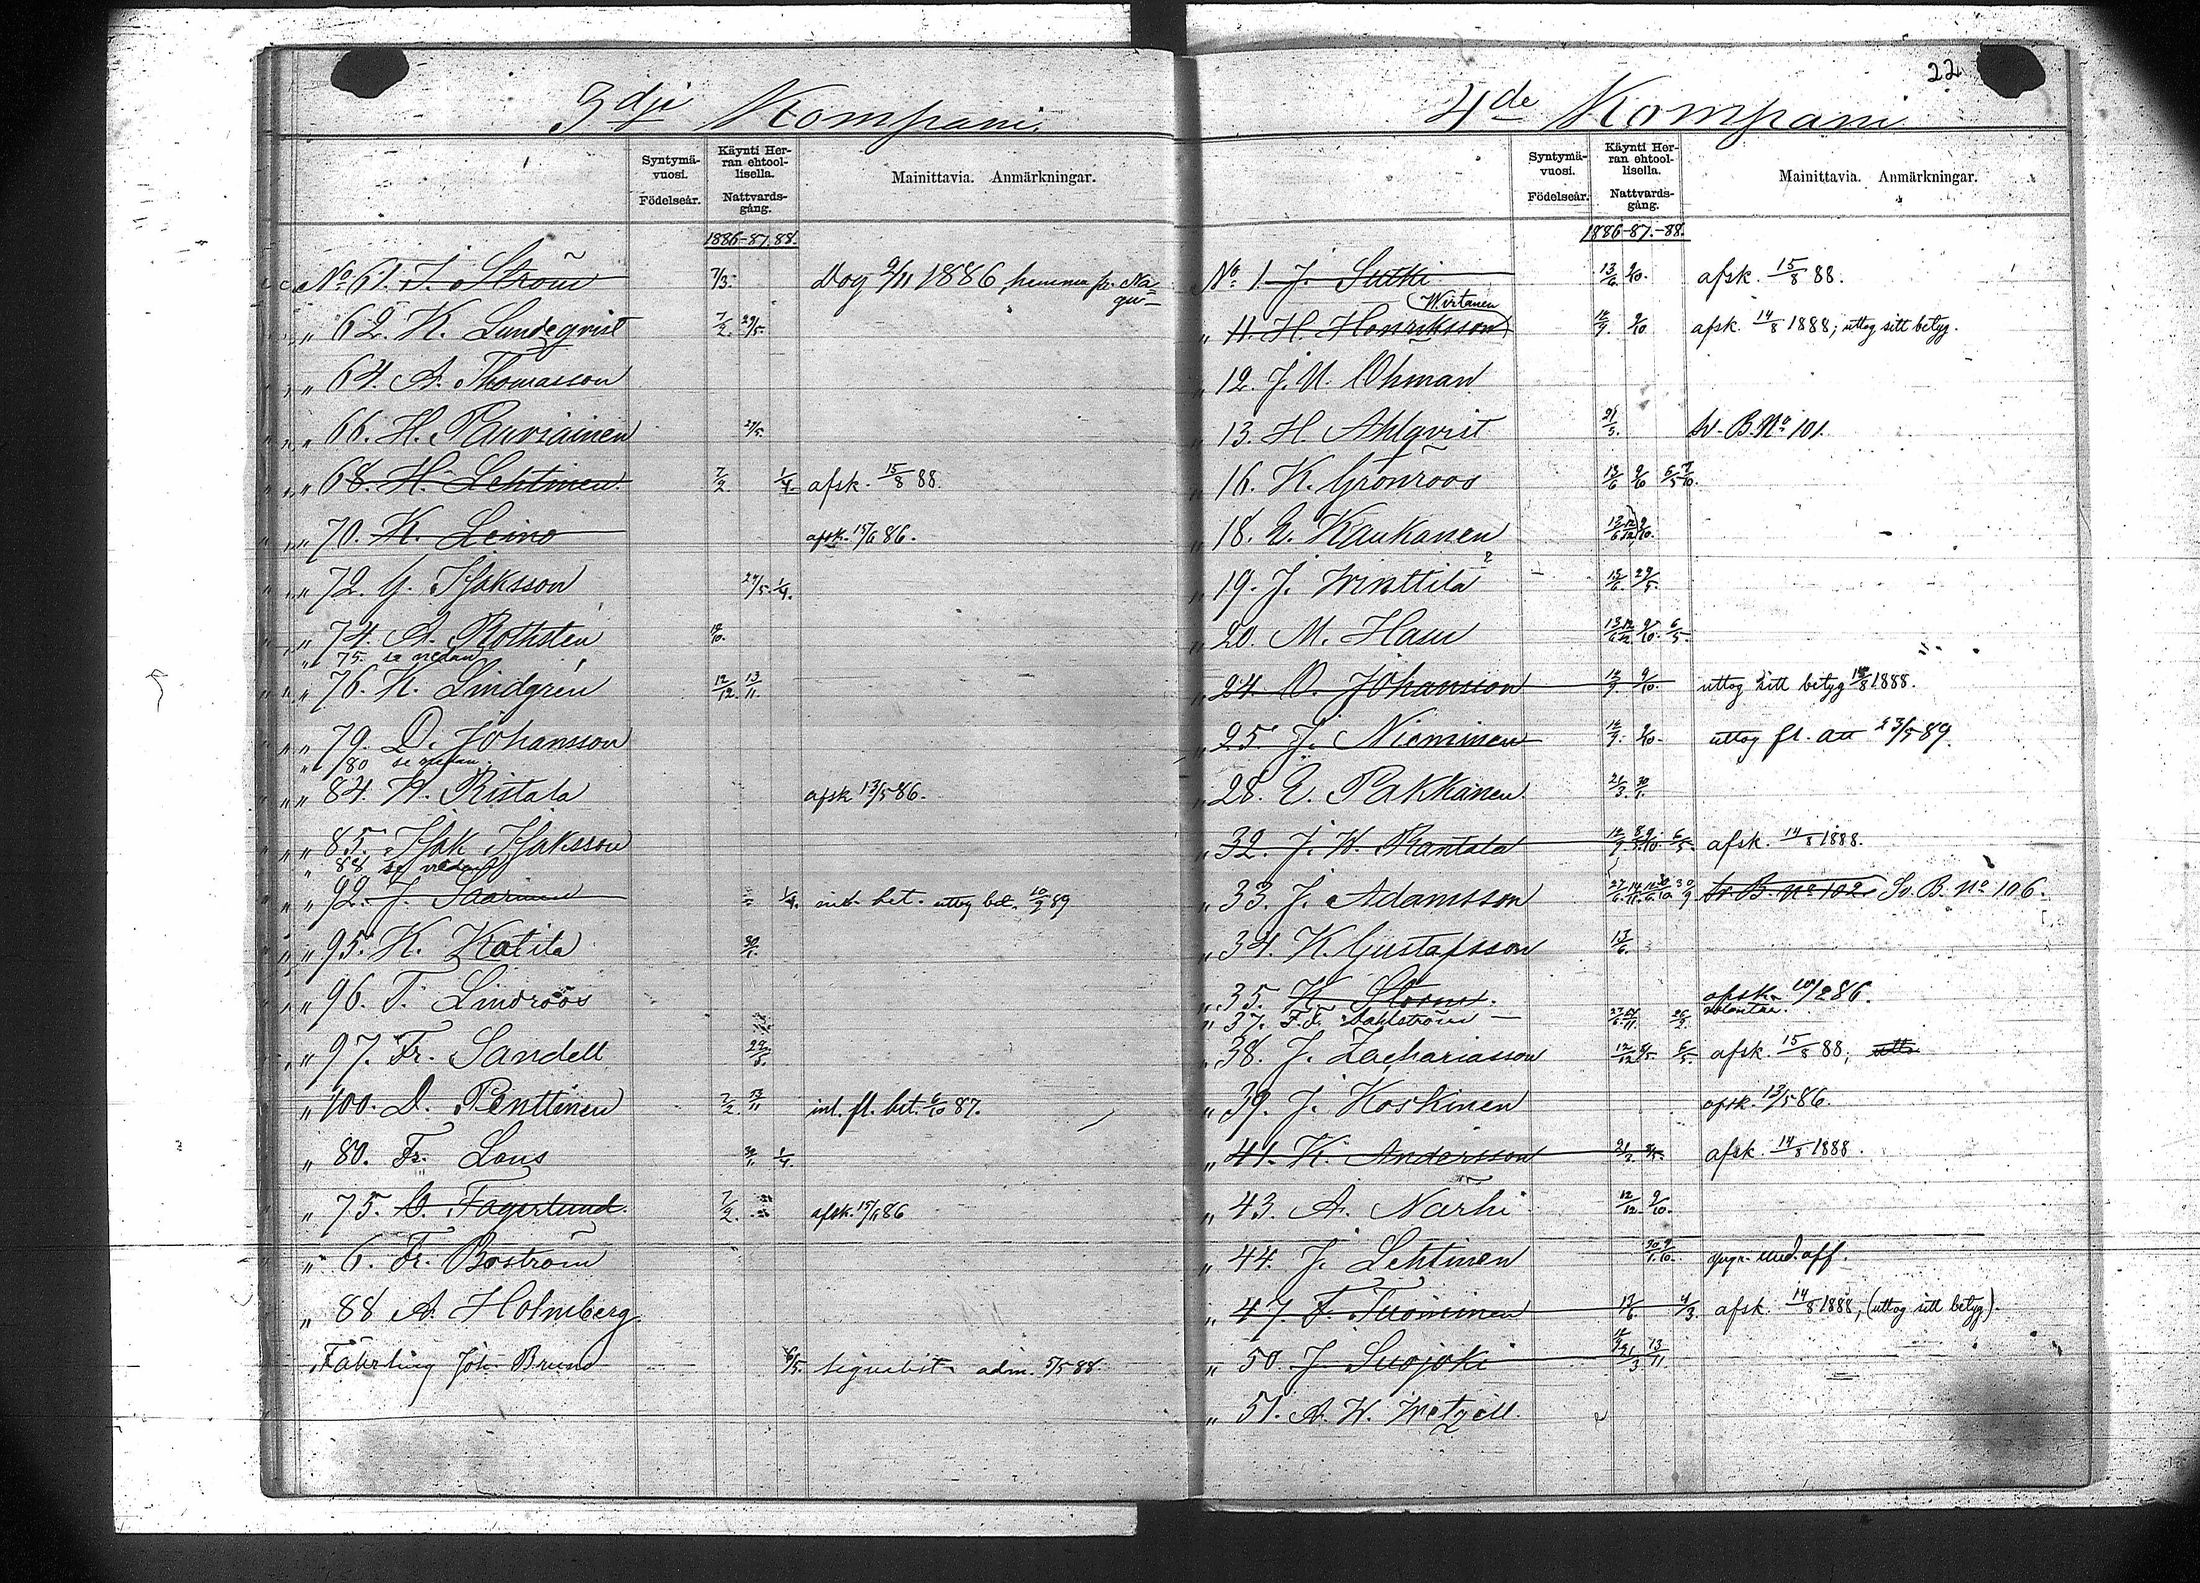 3dje Kompani.
Syntymävuosi. Födelseår.
Käynti Herran ehtoollisella. Nattvardsgång.
Mainittavia. Anmärkningar.
1886-87.88.
No 61. J. Ström 7/3. Dog 9/11 1886 hemma fr. Nagu
" 62. K. Lundeqvist 7/2. 29/5.
" 64. A. Thomasson
" 66. H. Pauviainen 29/5.
" 68. H. Lehtinen. 7/2. 1/4 afsk. 15/8 88.
" 70. K. Leino afsk. 15/ 86.
" 72. G. Isaksson 29/5. 1/4.
" 74. A. Rothsten
" 75. se nedan
" 76. K. Lindgrén 12/12. 13/11.
" 79. D. Johansson
" 80 se nedan.
" 84. W. Ristala afsk 13/5 86.
" 85. Isak Isaksson
" 88 se nedan
" 92. J. Saarinen 1/4. uttog bet. 10/2 89
" 95. K. Katila 30/1.
" 96. T. Lindroos
" 97. Fr. Sandell 29/5.
" 100. D. Penttinen 7/2. 13/11 int. fl. bet. 6/10 87.
" 80. Fr. Lous 1/4.
" 75. Fagerlund. 7/2. afsk. 15/ 86
" 6. Fr. Boström
" 88 A. Holmberg
Fährling Joh. Bruno 6/5. signalist adm. 5/5 88
22
4de Kompani
Syntymävuosi. Födelseår.
Käynti Herran ehtoollisella. Nattvardsgång.
Mainittavia. Anmärkningar.
1886-87.-88.
No 1. J. Sutki 13/6 9/10. afsk. 15/8 88.
(Wirtanen
" 11. H. Henriksson) 12/9. 9/10 afsk. 14/8 1888; uttog sitt betyg.
" 12. J. U. Öhman
" 13. H. Ahlqvist 21/3. Sv. B. No 101.
" 16. K. Grönroos 13/6 9/10 6/5
" 18. E. Kaukanen 13/6 12/12 9/10.
" 19. J. Winttila 13/6. 29/5.
" 20. M. Hasu 13/6 12/12 9/10. 6/5.
" 24. O. Johansson 12/9 9/10. uttog sitt betyg 1888.
" 25. J. Nieminen 12/9. 9/10. uttog fl. att 23/5 89.
" 28. E. Pakkanen 21/3. 30/1.
" 32. J. W. Rantala 12/9 9/10. 6/5. afsk. 14/8 1888.
" 33. J. Adamsson 30/9 Sv. B. No 102 Sv. B. No 106.
" 34. K. Gustafsson 13/6.
" 35. K. Storm. afsk. 10/2 86.
" 37. F. F. Dahlström — volontär.
" 38. J. Zachariasson 12/12. 6/5. afsk. 15/8 88; utto
" 39. J. Koskinen afsk. 13/5 86.
" 41. K. Andersson 21/3. afsk. 14/8 1888.
" 43. A. Närhi 12/12. 9/10.
" 44. J. Lehtinen 30/1. 9/10. und. off.
" 47. F. Tuominen 13/6 4/3. afsk. 14/8 1888, (uttog sitt betyg).
" 50. J. Suojoki 21/3 13/11
" 51. A. W. Wetzell.